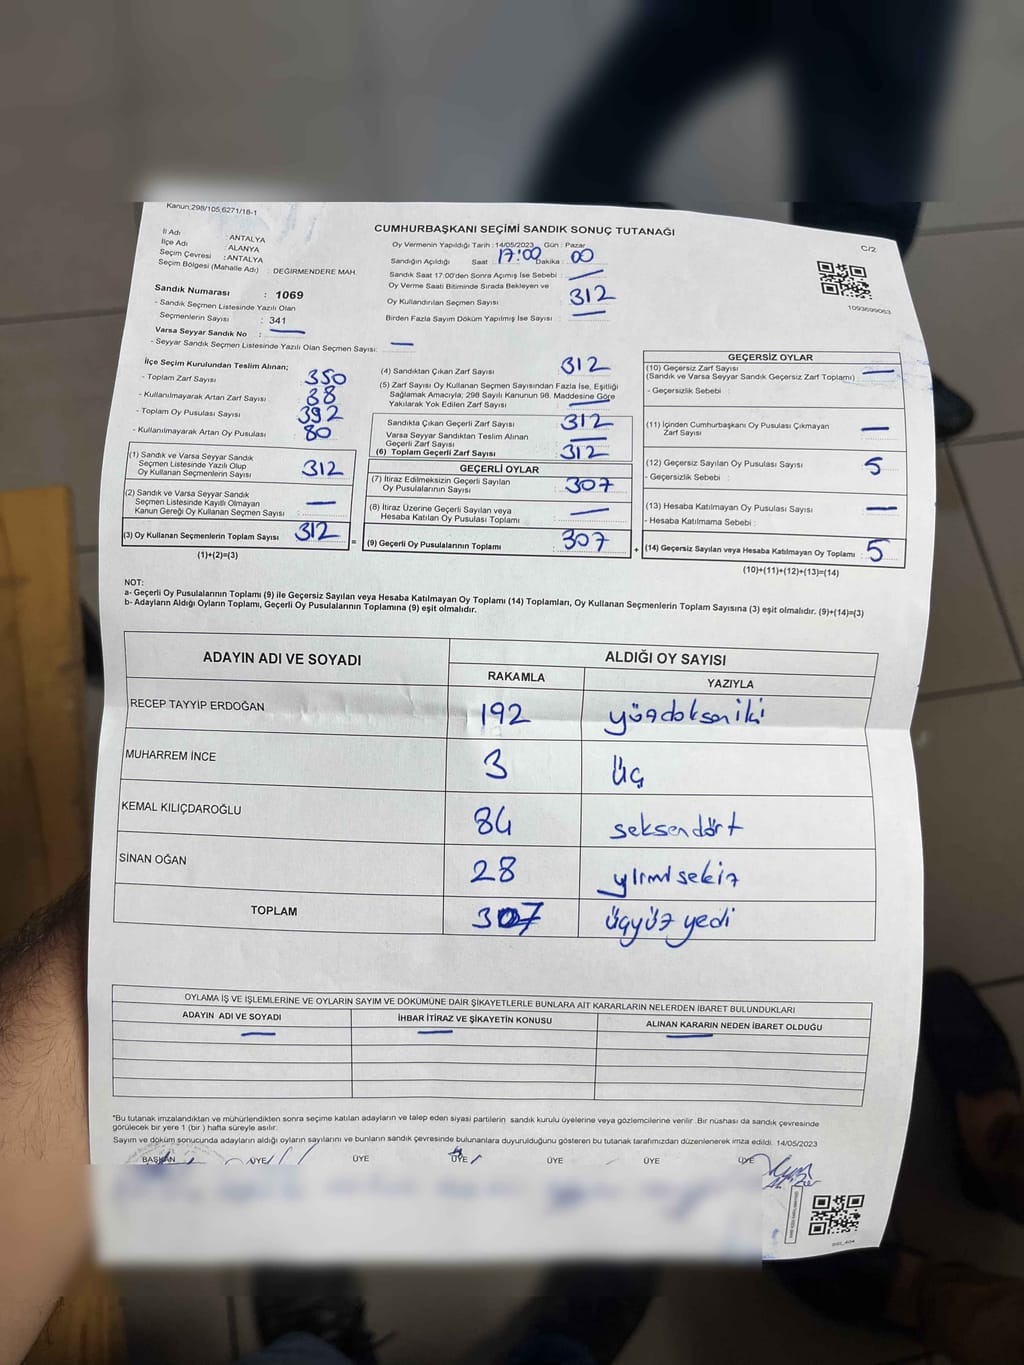 Kanun;298/105,6271/18-1
CUMHURBAŞKANI SEÇİMİ SANDIK SONUÇ TUTANAĞI
C/2
İl Adı : ANTALYA
İlçe Adı : ALANYA
Seçim Çevresi : ANTALYA
Seçim Bölgesi (Mahalle Adı) : DEĞİRMENDERE MAH.
Sandık Numarası : 1069
- Sandık Seçmen Listesinde Yazılı Olan
Seçmenlerin Sayısı : 341
Varsa Seyyar Sandık No :
- Seyyar Sandık Seçmen Listesinde Yazılı Olan Seçmen Sayısı:
Oy Vermenin Yapıldığı Tarih : 14/05/2023 Gün : Pazar
Sandığın Açıldığı Saat 17:00 Dakika : 00
Sandık Saat 17:00'den Sonra Açımış İse Sebebi :
Oy Verme Saati Bitiminde Sırada Bekleyen ve
Oy Kullandırılan Seçmen Sayısı 312
Birden Fazla Sayım Döküm Yapılmış İse Sayısı :
1093699063
İlçe Seçim Kurulundan Teslim Alınan;
- Toplam Zarf Sayısı 350
- Kullanılmayarak Artan Zarf Sayısı 38
- Toplam Oy Pusulası Sayısı 392
- Kullanılmayarak Artan Oy Pusulası 80
(1) Sandık ve Varsa Seyyar Sandık
Seçmen Listesinde Yazılı Olup
Oy Kullanan Seçmenlerin Sayısı 312
(2) Sandık ve Varsa Seyyar Sandık
Seçmen Listesinde Kayıllı Olmayan
Kanun Gereği Oy Kullanan Seçmen Sayısı :
(3) Oy Kullanan Seçmenlerin Toplam Sayısı 312 =
(1)+(2)=(3)
(4) Sandıktan Çıkan Zarf Sayısı 312
(5) Zarf Sayısı Oy Kullanan Seçmen Sayısından Fazla İse, Eşitliği
Sağlamak Amacıyla; 298 Sayılı Kanunun 98. Maddesine Göre
Yakılarak Yok Edilen Zarf Sayısı
Sandıkta Çıkan Geçerli Zarf Sayısı 312
Varsa Seyyar Sandıktan Teslim Alınan
Geçerli Zarf Sayısı
(6) Toplam Geçerli Zarf Sayısı 312
GEÇERLİ OYLAR
(7) İtiraz Edilmeksizin Geçerli Sayılan
Oy Pusulalarının Sayısı 307
(8) İtiraz Üzerine Geçerli Sayılan veya
Hesaba Katılan Oy Pusulası Toplamı
(9) Geçerli Oy Pusulalarının Toplamı 307 +
GEÇERSİZ OYLAR
(10) Geçersiz Zarf Sayısı
(Sandık ve Varsa Seyyar Sandık Geçersiz Zarf Toplamı)
- Geçersizlik Sebebi
(11) İçinden Cumhurbaşkanı Oy Pusulası Çıkmayan
Zarf Sayısı
(12) Geçersiz Sayılan Oy Pusulası Sayısı 5
- Geçersizlik Sebebi :
(13) Hesaba Katılmayan Oy Pusulası Sayısı
- Hesaba Katılmama Sebebi :
(14) Geçersiz Sayılan veya Hesaba Katılmayan Oy Toplamı 5
(10)+(11)+(12)+(13)=(14)
NOT:
a- Geçerli Oy Pusulalarının Toplamı (9) ile Geçersiz Sayılan veya Hesaba Katılmayan Oy Toplamı (14) Toplamları, Oy Kullanan Seçmenlerin Toplam Sayısına (3) eşit olmalıdır. (9)+(14)=(3)
b- Adayların Aldığı Oyların Toplamı, Geçerli Oy Pusulalarının Toplamına (9) eşit olmalıdır.
ADAYIN ADI VE SOYADI ALDIĞI OY SAYISI
RAKAMLA YAZIYLA
RECEP TAYYİP ERDOĞAN 192 yüzdoksaniki
MUHARREM İNCE 3 üç
KEMAL KILIÇDAROĞLU 84 seksendört
SİNAN OĞAN 28 yirmisekiz
TOPLAM 307 üçyüz yedi
OYLAMA İŞ VE İŞLEMLERİNE VE OYLARIN SAYIM VE DÖKÜMÜNE DAİR ŞİKAYETLERLE BUNLARA AİT KARARLARIN NELERDEN İBARET BULUNDUKLARI
ADAYIN ADI VE SOYADI İHBAR İTİRAZ VE ŞİKAYETİN KONUSU ALINAN KARARIN NEDEN İBARET OLDUĞU
"Bu tutanak imzalandıktan ve mühürlendikten sonra seçime katılan adayların ve talep eden siyasi partilerin sandık kurulu üyelerine veya gözlemcilerine verilir. Bir nüshası da sandık çevresinde
görülecek bir yere 1 (bir ) hafta süreyle asılır.
Sayım ve döküm sonucunda adayların aldığı oyların sayılarını ve bunların sandık çevresinde bulunanlara duyurulduğunu gösteren bu tutanak tarafımızdan düzenlenerek imza edildi. 14/05/2023
BAŞKAN ÜYE ÜYE ÜYE ÜYE ÜYE ÜYE